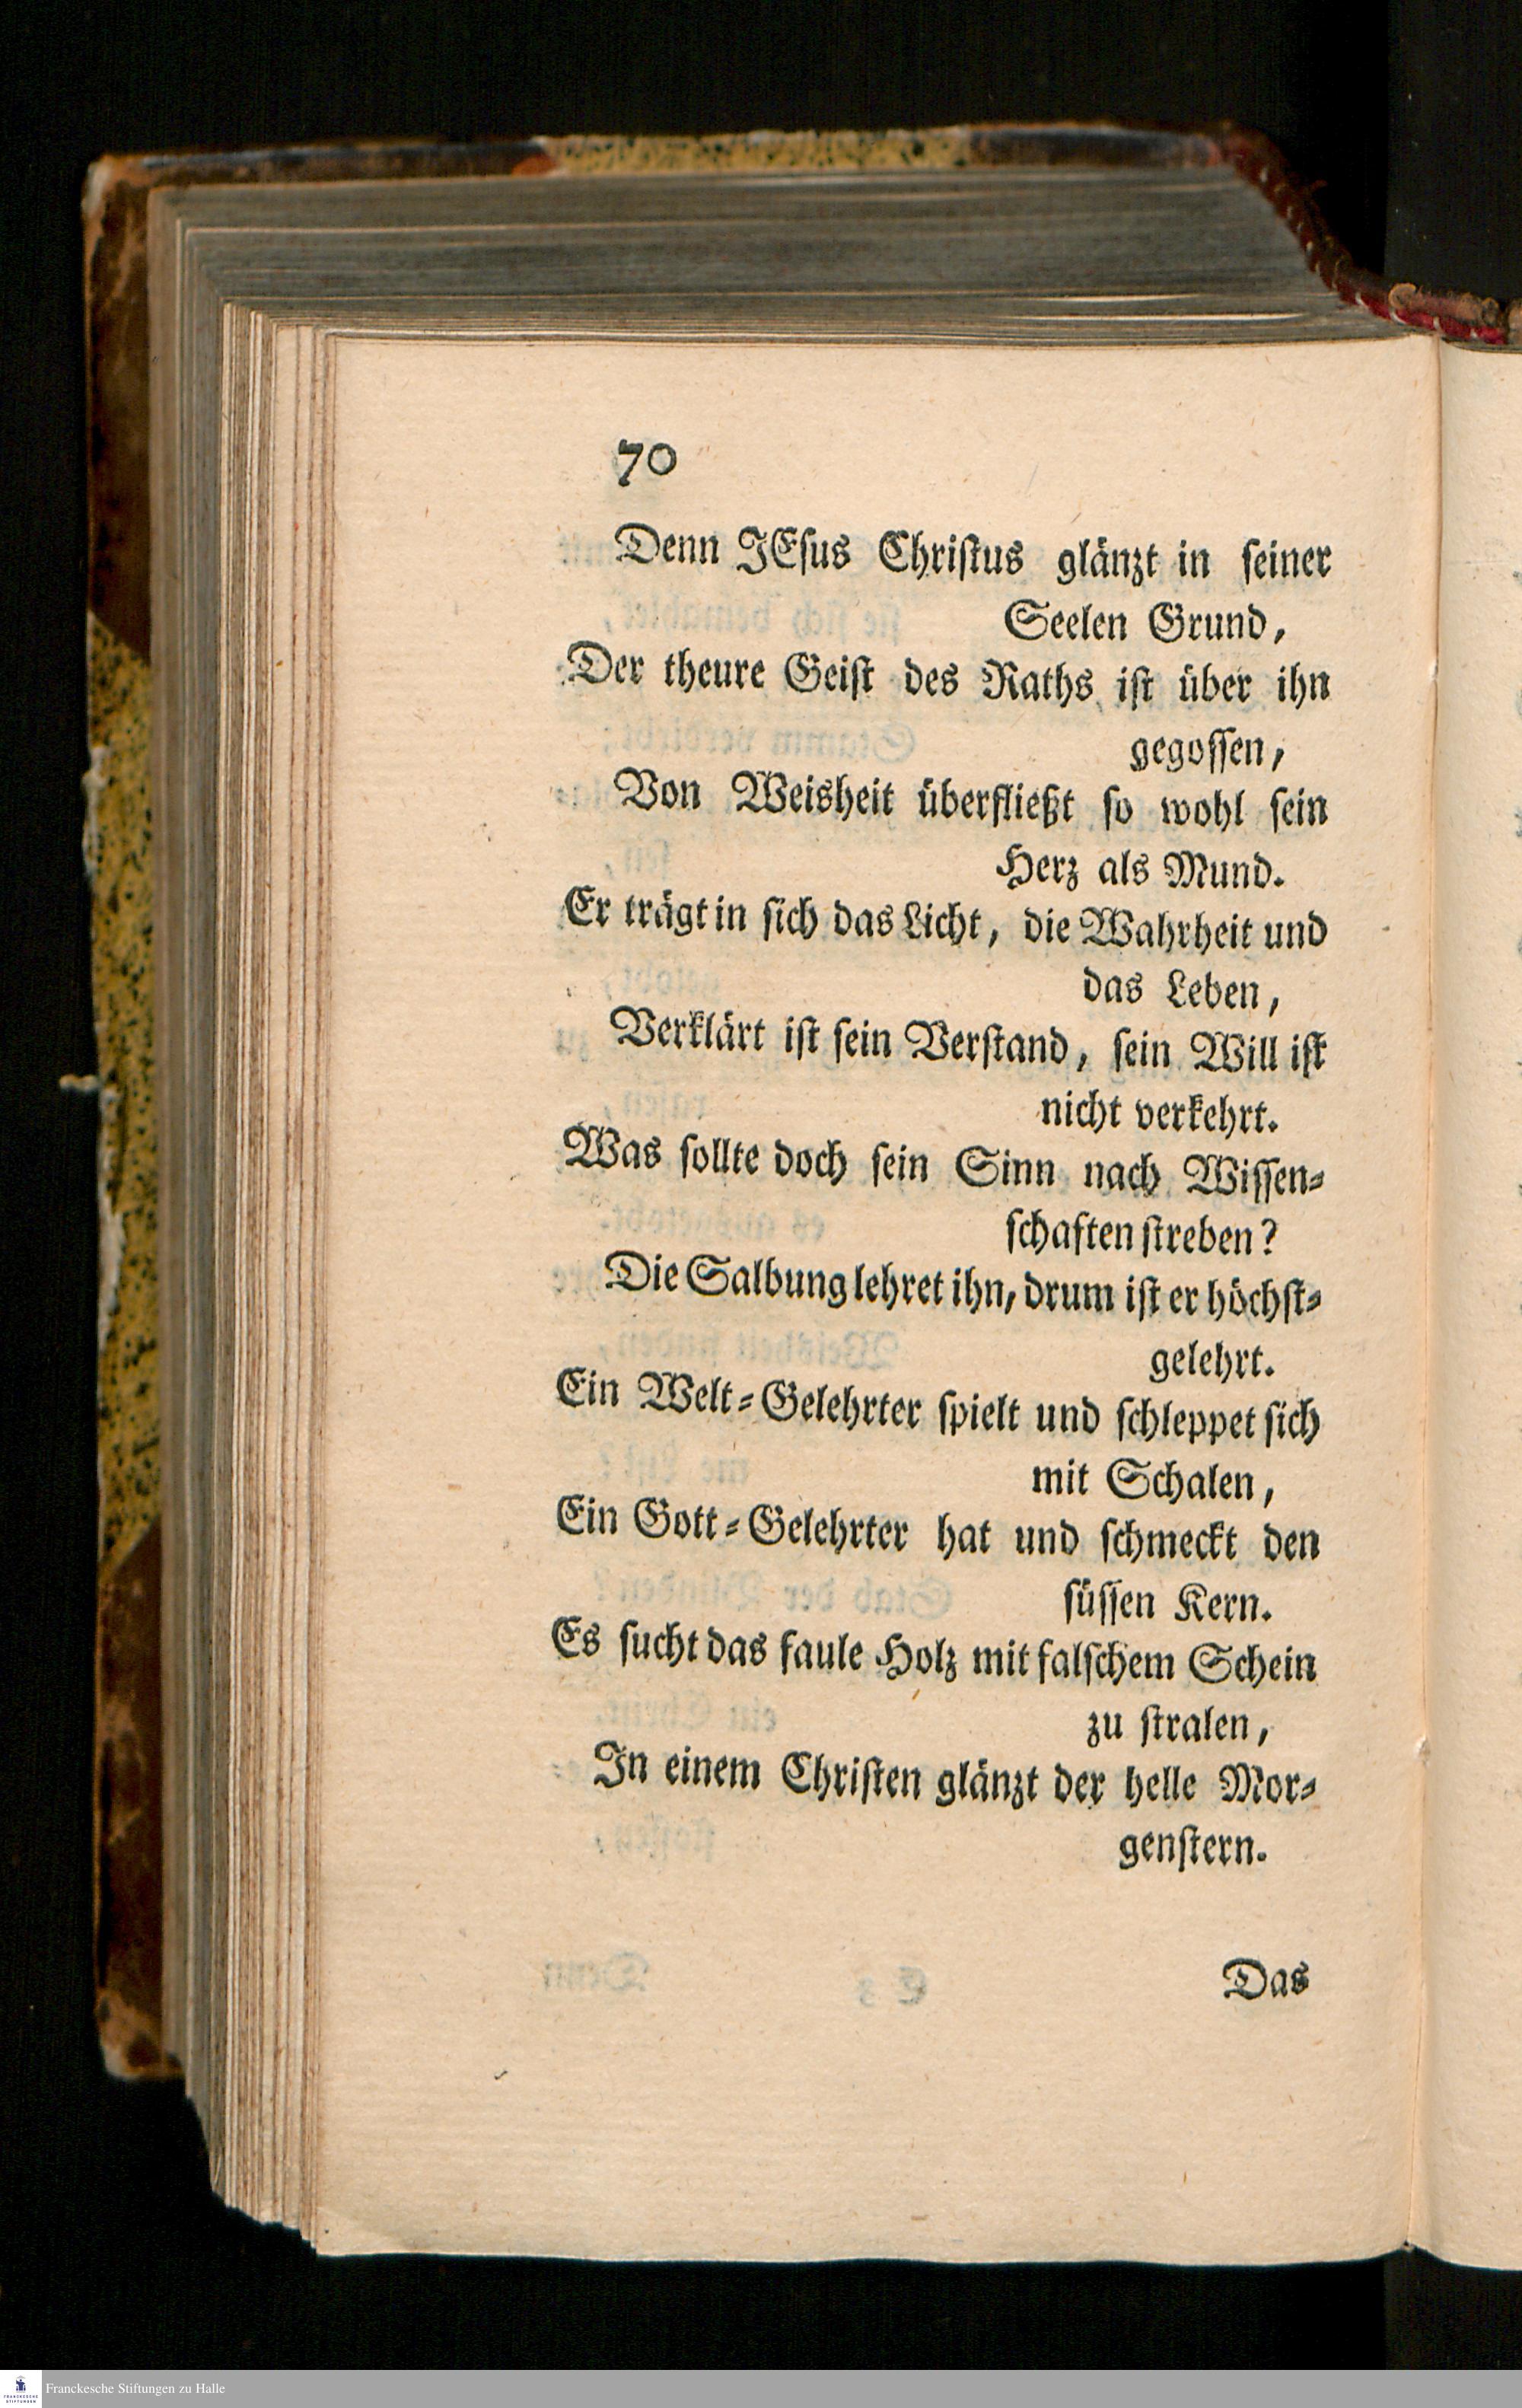 70
Denn JEſus Chriſtus glänzt in ſeiner
Seelen Grund,
Der theure Geiſt des Raths iſt über ihn
gegoſſen,
Von Weisheit überfließt ſo wohl ſein
Herz als Mund.
Er trägt in ſich das Licht, die Wahrheit und
das Leben,
Verklärt iſt ſein Verſtand, ſein Will iſt
nicht verkehrt.
Was ſollte doch ſein Sinn nach Wiſſen⸗
ſchaften ſtreben?
Die Salbung lehret ihn, drum iſt er höchſt⸗
gelehrt.
Ein Welt⸗Gelehrter ſpielt und ſchleppet ſich
mit Schalen,
Ein Gott⸗Gelehrter hat und ſchmeckt den
ſüſſen Kern.
Es ſucht das faule Holz mit falſchem Schein
zu ſtralen,
In einem Chriſten glänzt der helle Mor⸗
genſtern.
Das
Franckesche Stiftungen zu Halle